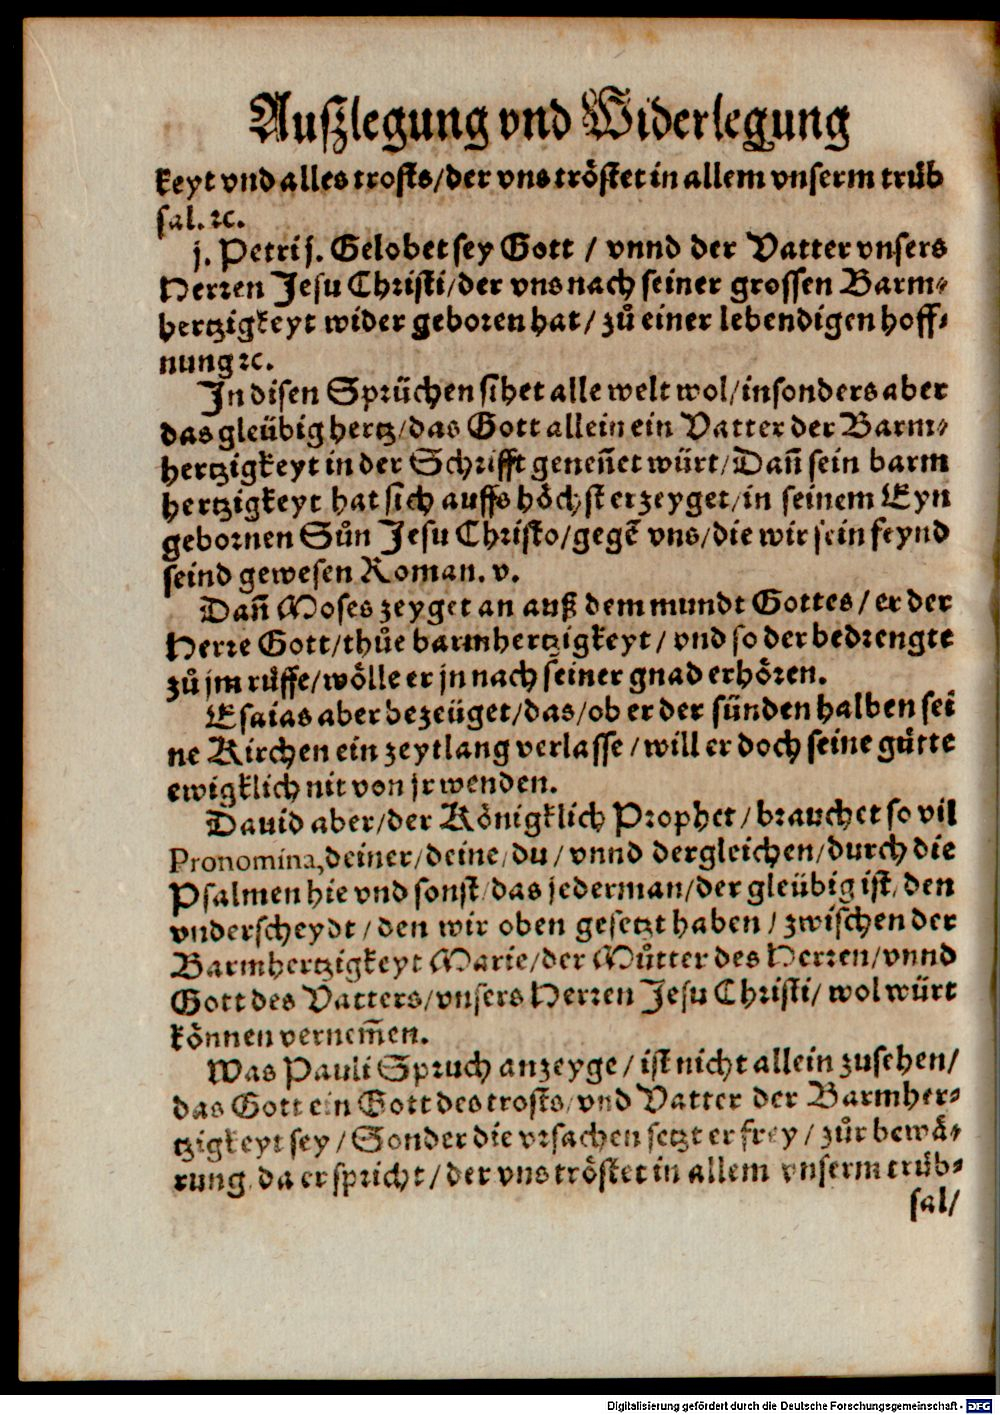 Außlegung vnd Widerlegung
keyt vnd alles trosts/der vns tröstet in allem vnserm trůb
sal. ꝛc.
j. Petri j. Gelobet sey Gott / vnnd der Vatter vnsers
Herren Jesu Christi/der vns nach seiner grossen Barm⸗
hertzigkeyt wider geboren hat/ zů einer lebendigen hoff⸗
nung ꝛc.
In disen Sprüchen sihet alle welt wol/insonders aber
das gleübig hertz/das Gott allein ein Vatter der Barm⸗
hertzigkeyt in der Schrifft geneñet würt/Dañ sein barm
hertzigkeyt hat sich auffs höchst erzeyget/in seinem Eyn
gebornen Sůn Jesu Christo/gegẽ vns/die wir sein feynd
seind gewesen Roman. v.
Dañ Moses zeyget an auß dem mundt Gottes/ er der
Herre Gott/thůe barmhertzigkeyt/ vnd so der bedrengte
zů jm růffe/wölle er jn nach seiner gnad erhören.
Esaias aber bezeüget/das/ob er der sünden halben sei
ne Kirchen ein zeytlang verlasse/will er doch seine gůtte
ewigklich nit von jr wenden.
Dauid aber/der Königklich Prophet/brauchet so vil
Pronomina, deiner/deine/du/vnnd dergleichen/durch die
Psalmen hie vnd sonst/das jederman/der gleübig ist/den
vnderscheydt/den wir oben gesetzt haben/ zwischen der
Barmhertzigkeyt Marie/der Můtter des Herren/vnnd
Gott des Vatters/vnsers Herren Jesu Christi/wol würt
können vernem̃en.
Was Pauli Spruch anzeyge/ist nicht allein zusehen/
das Gott ein Gott des trosts/vnd Vatter der Barmher⸗
tzigkeyt sey/Sonder die vrsachen setzt er frey/zůr bewä⸗
rung, da er spricht/der vns tröstet in allem vnserm trůb⸗
sal/
Digitalisierung gefördert durch die Deutsche Forschungsgemeinschaft - DFG